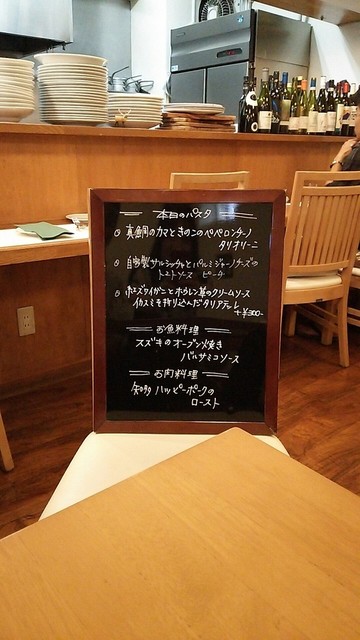 本日のパスタ
真鯛のカマときのこのペペロンチーノ
タリオリーニ
自家製サルシッチャとパルミジャーノチーズの
トマトソース ビーチ
ホエズワイガニとホウレン草のクリームソース
イカスミを折り込んだタリアテレ
+¥300-
お魚料理
スズキのオーブン焼き
バルサミコソース
お肉料理
知多ハッピーポークの
ロースト